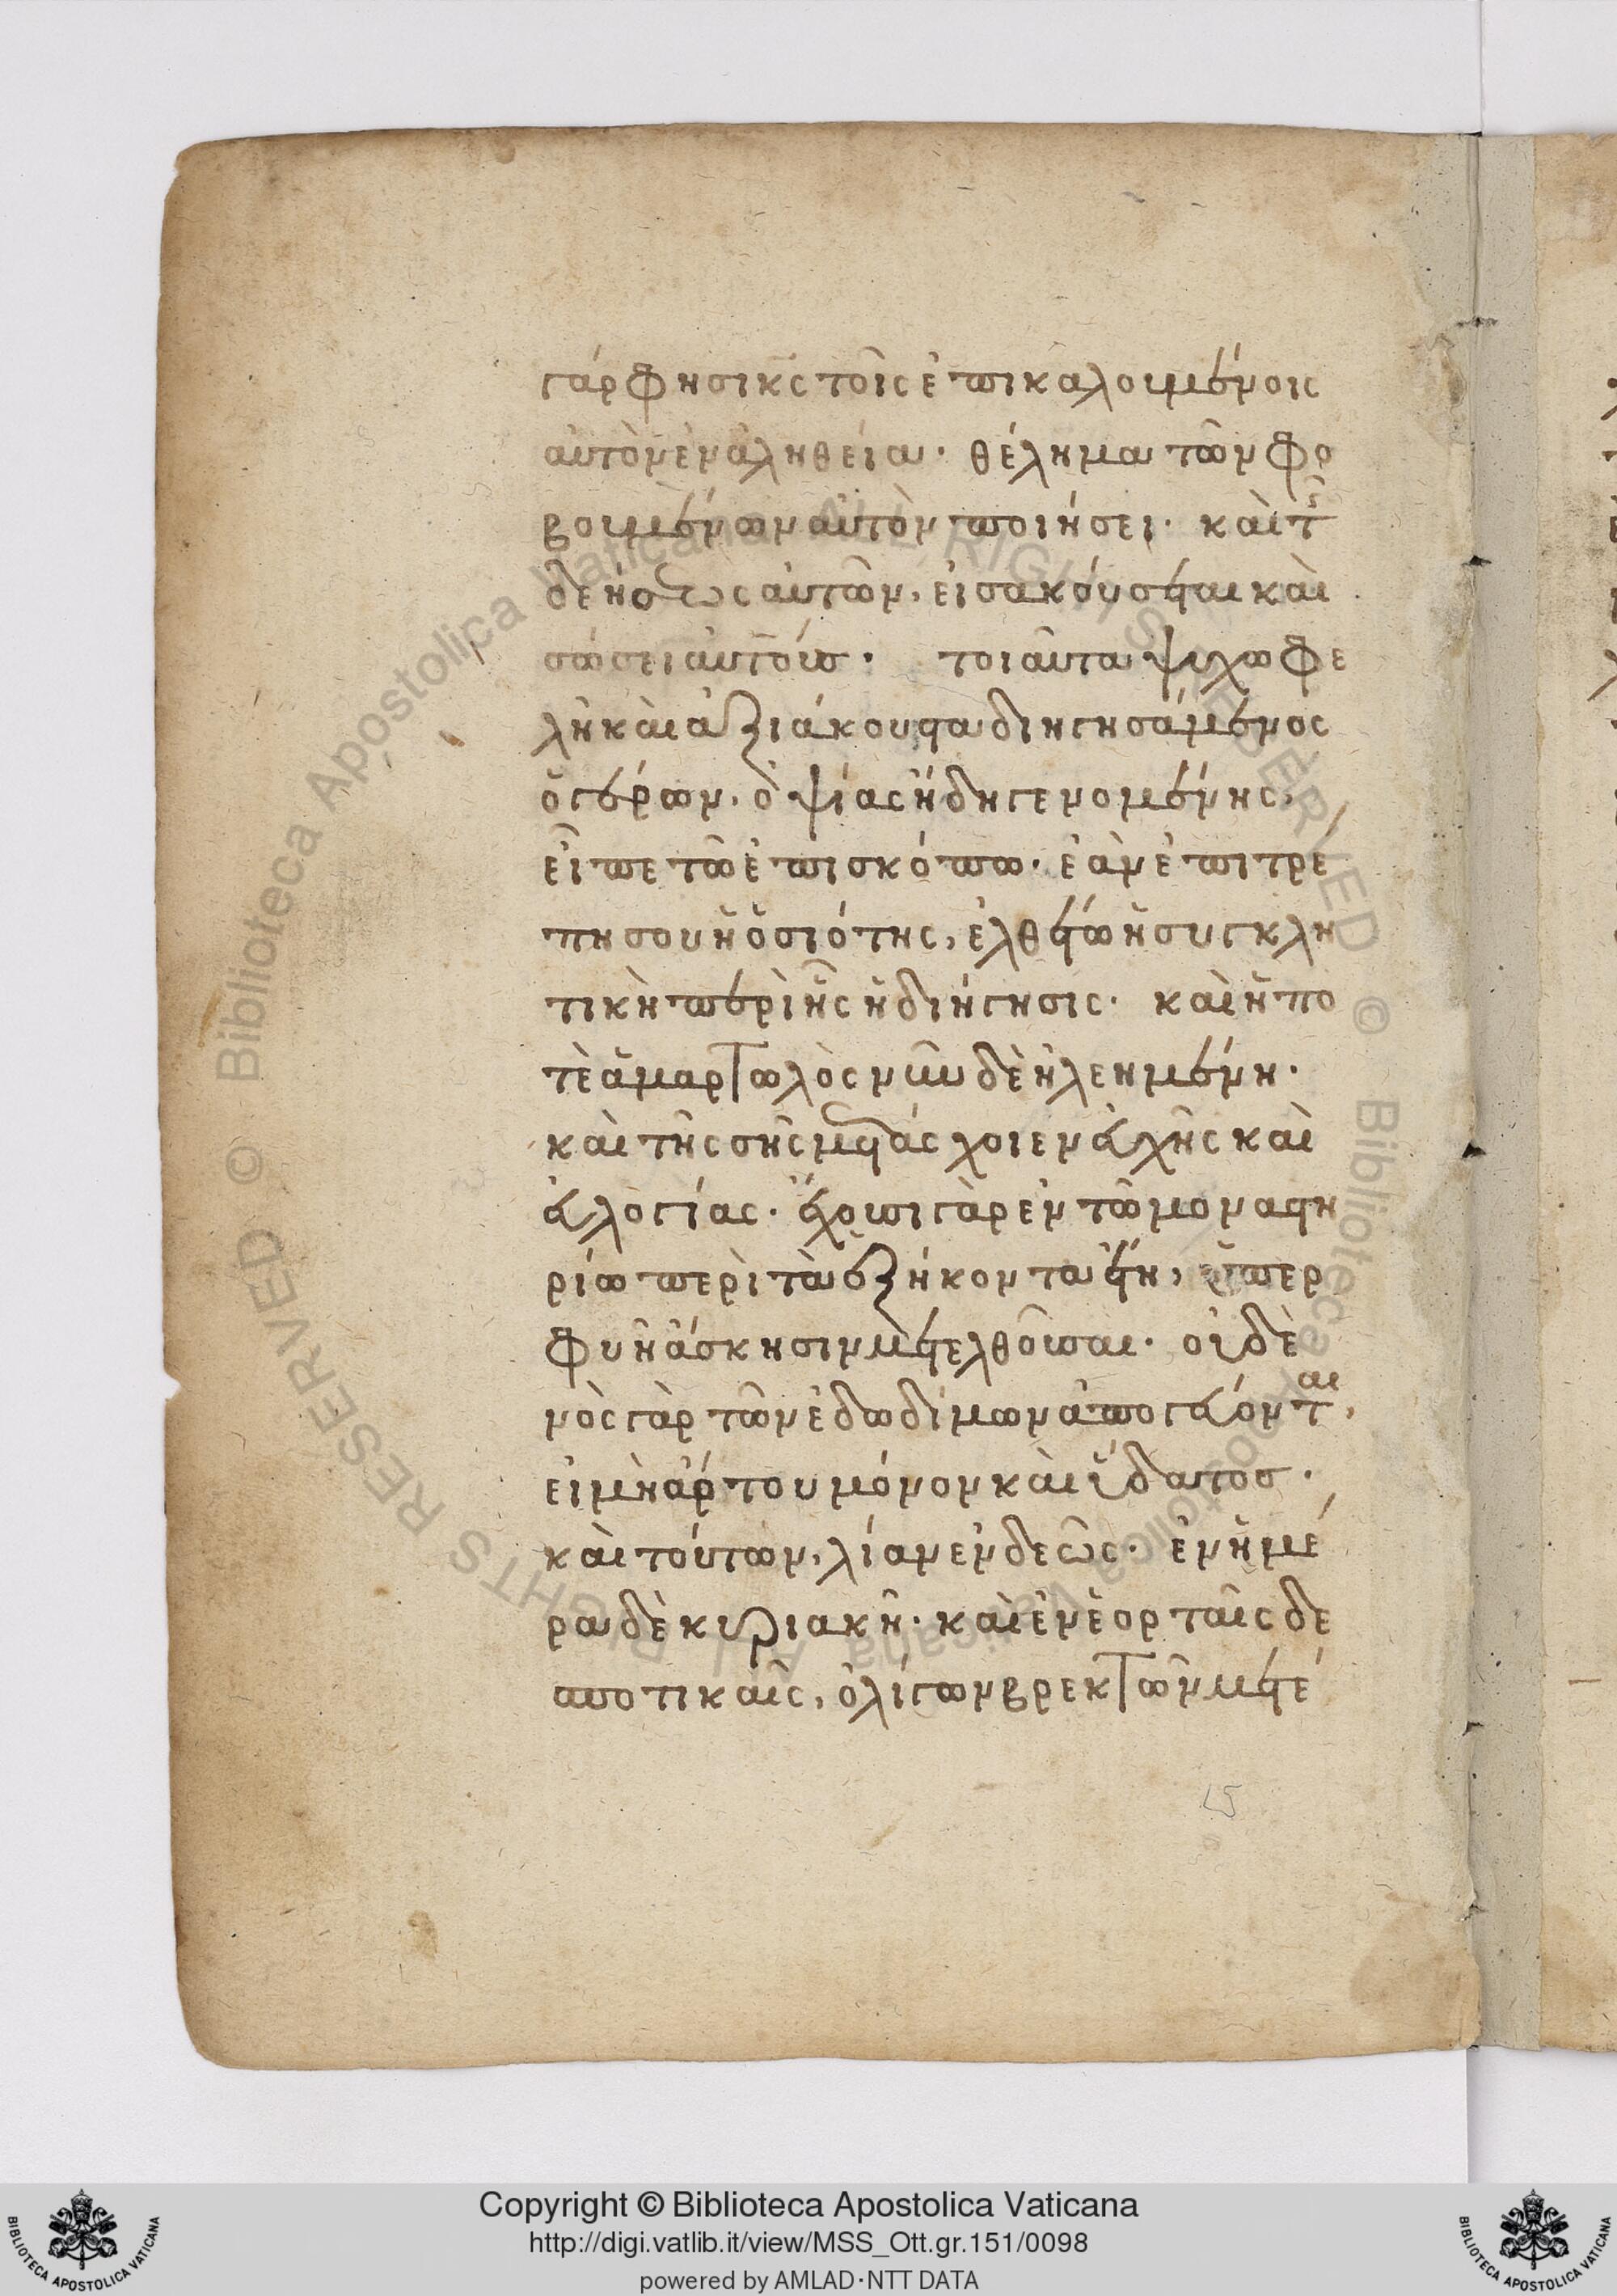 γάρ φησι κ(ύριο)ς τοῖς ἐπικαλουμένοις
αὐτὸν ἐν ἀληθεία· θέλημα τῶν φο
βουμένων αὐτὸν ποιήσει· καὶ τῆς
δεήσεως αὐτῶν, εἰσακούσεται καὶ
σώσει αὐτούς· τοιαῦτα ψυχωφε
λῆ καὶ ἀξιάκουστα διηγησάμενος
ὁ γέρων, ὀψίας ἤδη γενομένης,
εἶπε τῶ ἐπισκόπω· ἐὰν ἐπιτρέ
πη σου ἡ ὁσιότης, ἐλθέτω ἡ συγκλη
τικὴ περὶ ἧς ἡ διήγησις· καὶ ἡ πο
τὲ ἁμαρτωλὸς νῦν δὲ ἠλεημένη·
καὶ τῆς σῆς μετάσχοιεν εὐχῆς καὶ
εὐλογίας· ἔχουσι γὰρ ἐν τῶ μοναστη
ρίω περὶ τὰ ἑξήκοντα ἔτη, ὑπερ
φυῆ ἄσκησιν μετελθοῦσαι· οὐδε
νὸς γὰρ τῶν ἐδωδίμων ἀπογεύονται,
εἰ μὴ ἄρτου μόνον καὶ ὕδατος·
καὶ τούτων, λίαν ἐνδεῶς· ἐν ἡμέ
ρα δὲ κυριακῆ· καὶ ἐν ἑορταῖς δε
σποτικαῖς, ὀλίγων βρεκτῶν μετέ
Copyright © Biblioteca Apostolica Vaticana
http://digi.vatlib.it/view/MSS_Ott.gr.151/0098
powered by AMLAD·NTT DATA
BIBLIOTECA APOSTOLICA VATICANA
BIBLIOTECA APOSTOLICA VATICANA